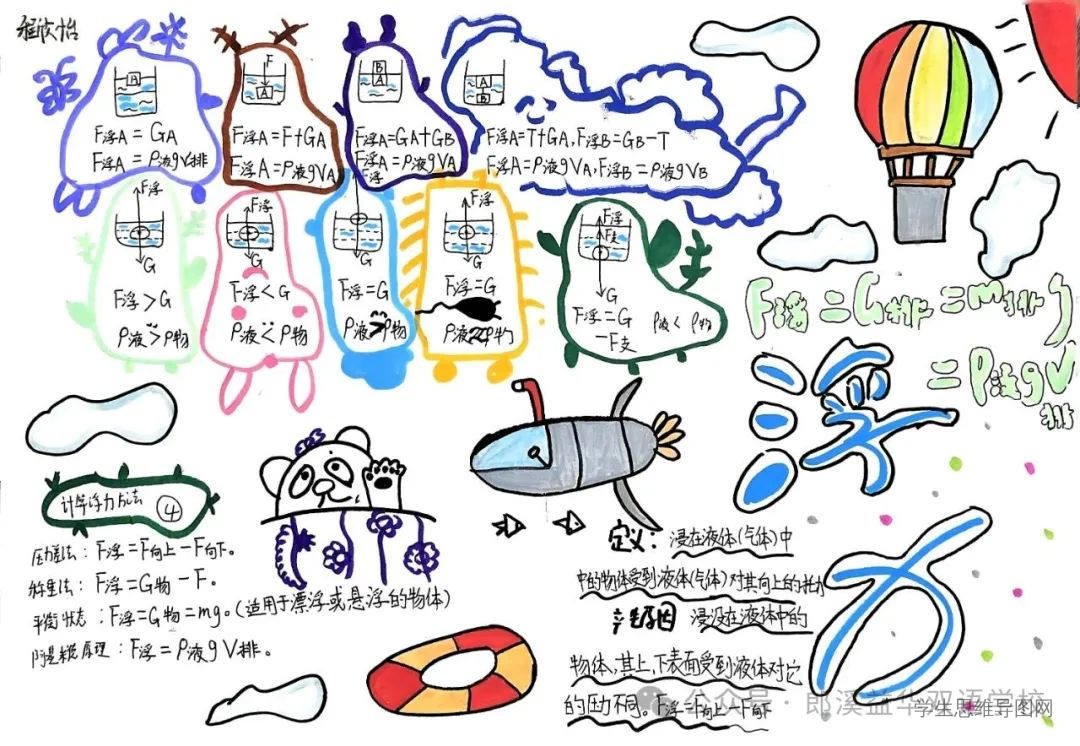 程欣怡
A
F浮A=GA
F浮A=ρ液gV排
F
A
F浮A=F+GA
F浮A=ρ液gVA
B
A
F浮A=GA+GB
F浮A=ρ液gVA
F浮
A
B
F浮A=T+GA,F浮B=GB-T
F浮A=ρ液gVA,F浮B=ρ液gVB
F浮
G
F浮>G
ρ液>ρ物
F浮
G
F浮<G
ρ液<ρ物
G
F浮=G
ρ液>ρ物
F浮
G
F浮=G
F浮
F支
G
F浮=G
-F支
ρ液<ρ物
F浮=G排=m排g
=ρ液gV排
浮力
计算浮力方法
④
压力差法:F浮=F向上-F向下。
称重法:F浮=G物-F。
平衡状态:F浮=G物=mg。(适用于漂浮或悬浮的物体)
阿基米德原理:F浮=ρ液gV排。
定义:浸在液体(气体)中
中的物体受到液体(气体)对其向上的托力
产生原因 浸没在液体中的
物体,其上、下表面受到液体对它
的压力不同。F浮=F向上-F向下
公众号·郎溪益华双语学校
学生思维导图网